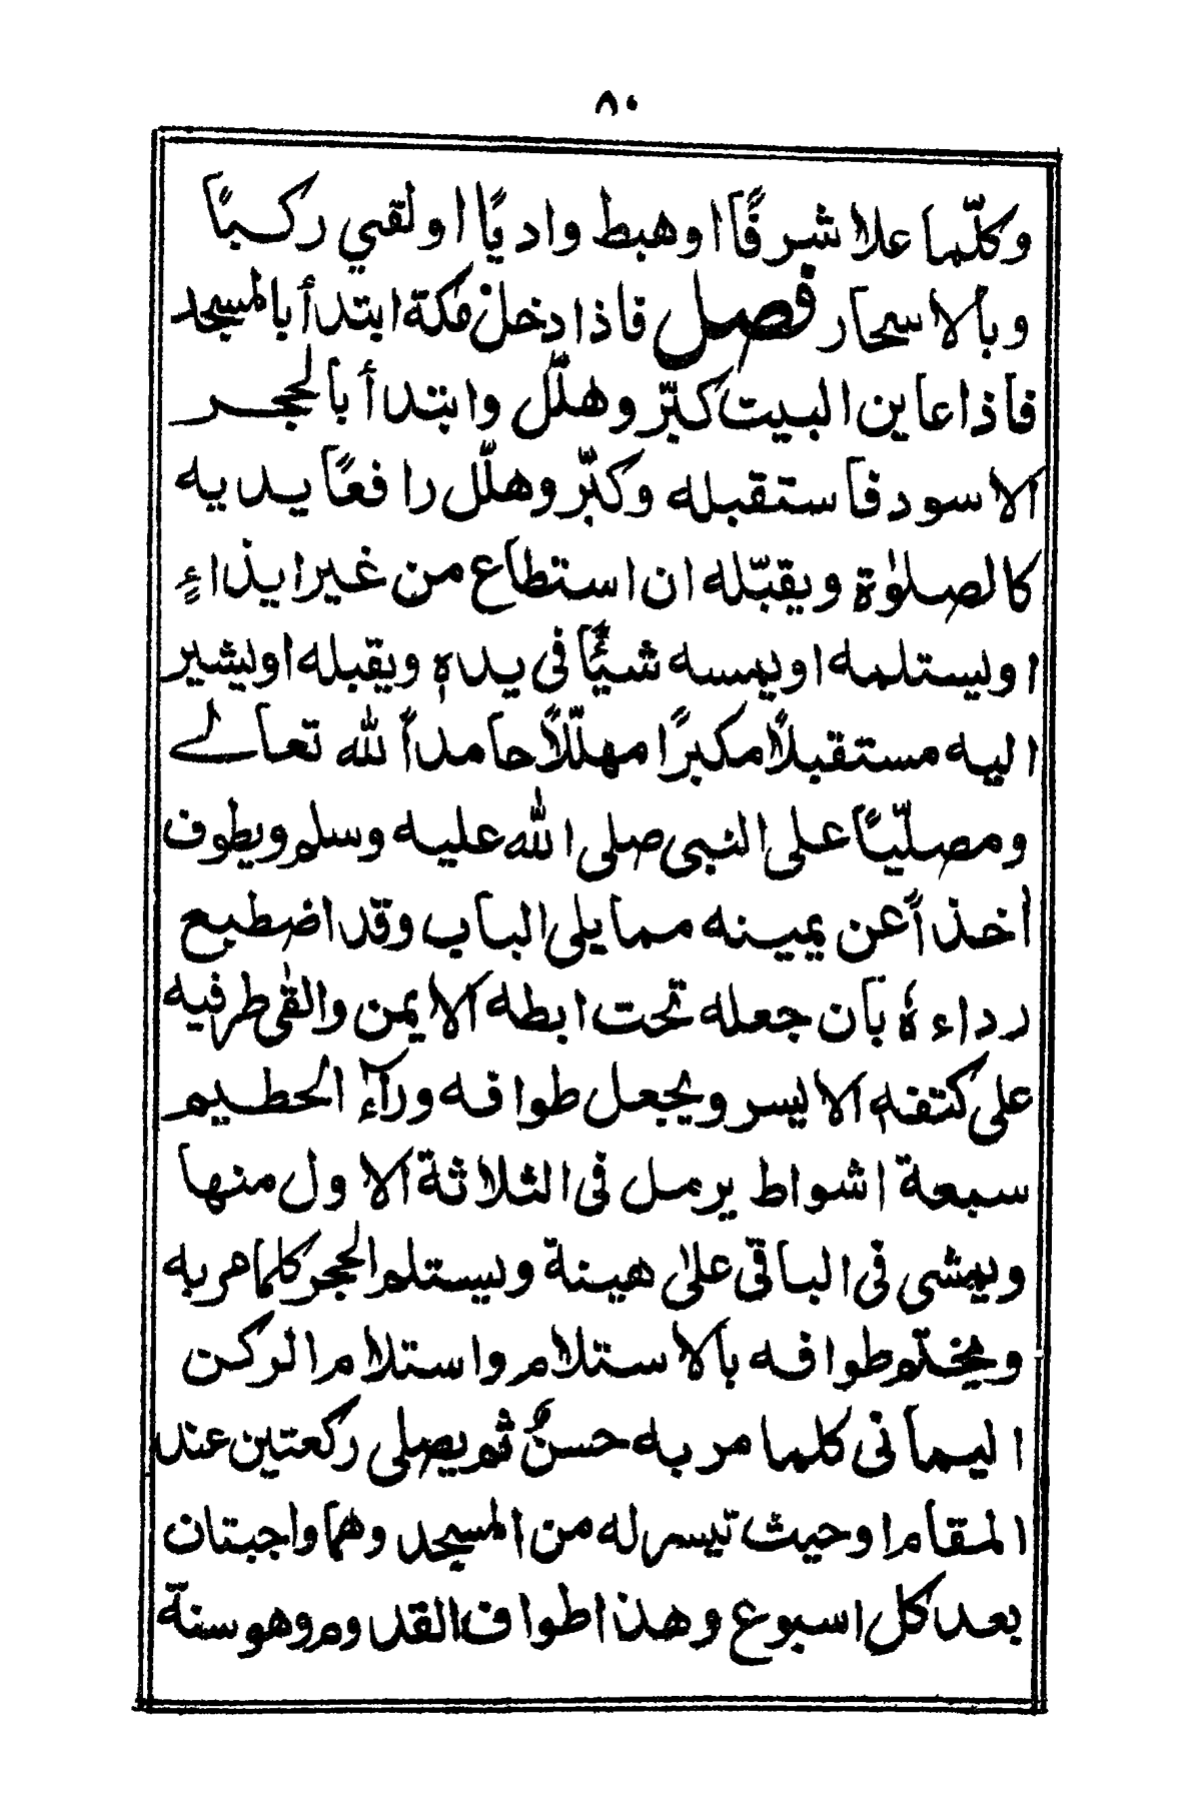 ٨٠
وكلّما علا شرفًا او هبط واديًا او لقي ركبًا
وبالاسحار فصل فاذا دخل مكة ابتدأ بالمسجد
فاذا عاين البيت كبّر وهلّل وابتدأ بالحجر
الاسود فاستقبله وكبّر وهلّل رافعًا يديه
كالصلوٰة ويقبّله ان استطاع من غير ايذاءٍ
او يستلمه او يمسه شيئًا فى يدهٖ ويقبله او يشير
اليه مستقبلًا مكبرًا مهلّلًا حامدأً لله تعالے
ومصلّيًا على النبى صلى الله عليه وسلم ويطوف
أخذاً عن يمينه مما يلى الباب وقد اضطبع
رداءهٗ بان جعله تحت ابطه الايمن والقٰى طرفيه
على كتفه الايسر ويجعل طوافه ورآء الحطيم
سبعة اشواط يرمل فى الثلاثة الاول منها
ويمشى فى الباقى علىٰ هينة ويستلم الحجر كلما مر به
ويختم طوافه بالاستلام واستلام الركن
اليمانى كلما مر به حسنٌ ثم يصلى ركعتين عند
المقام او حيث تيسر له من المسجد وهما واجبتان
بعد كل اسبوع وهذا طواف القدوم وهو سنة